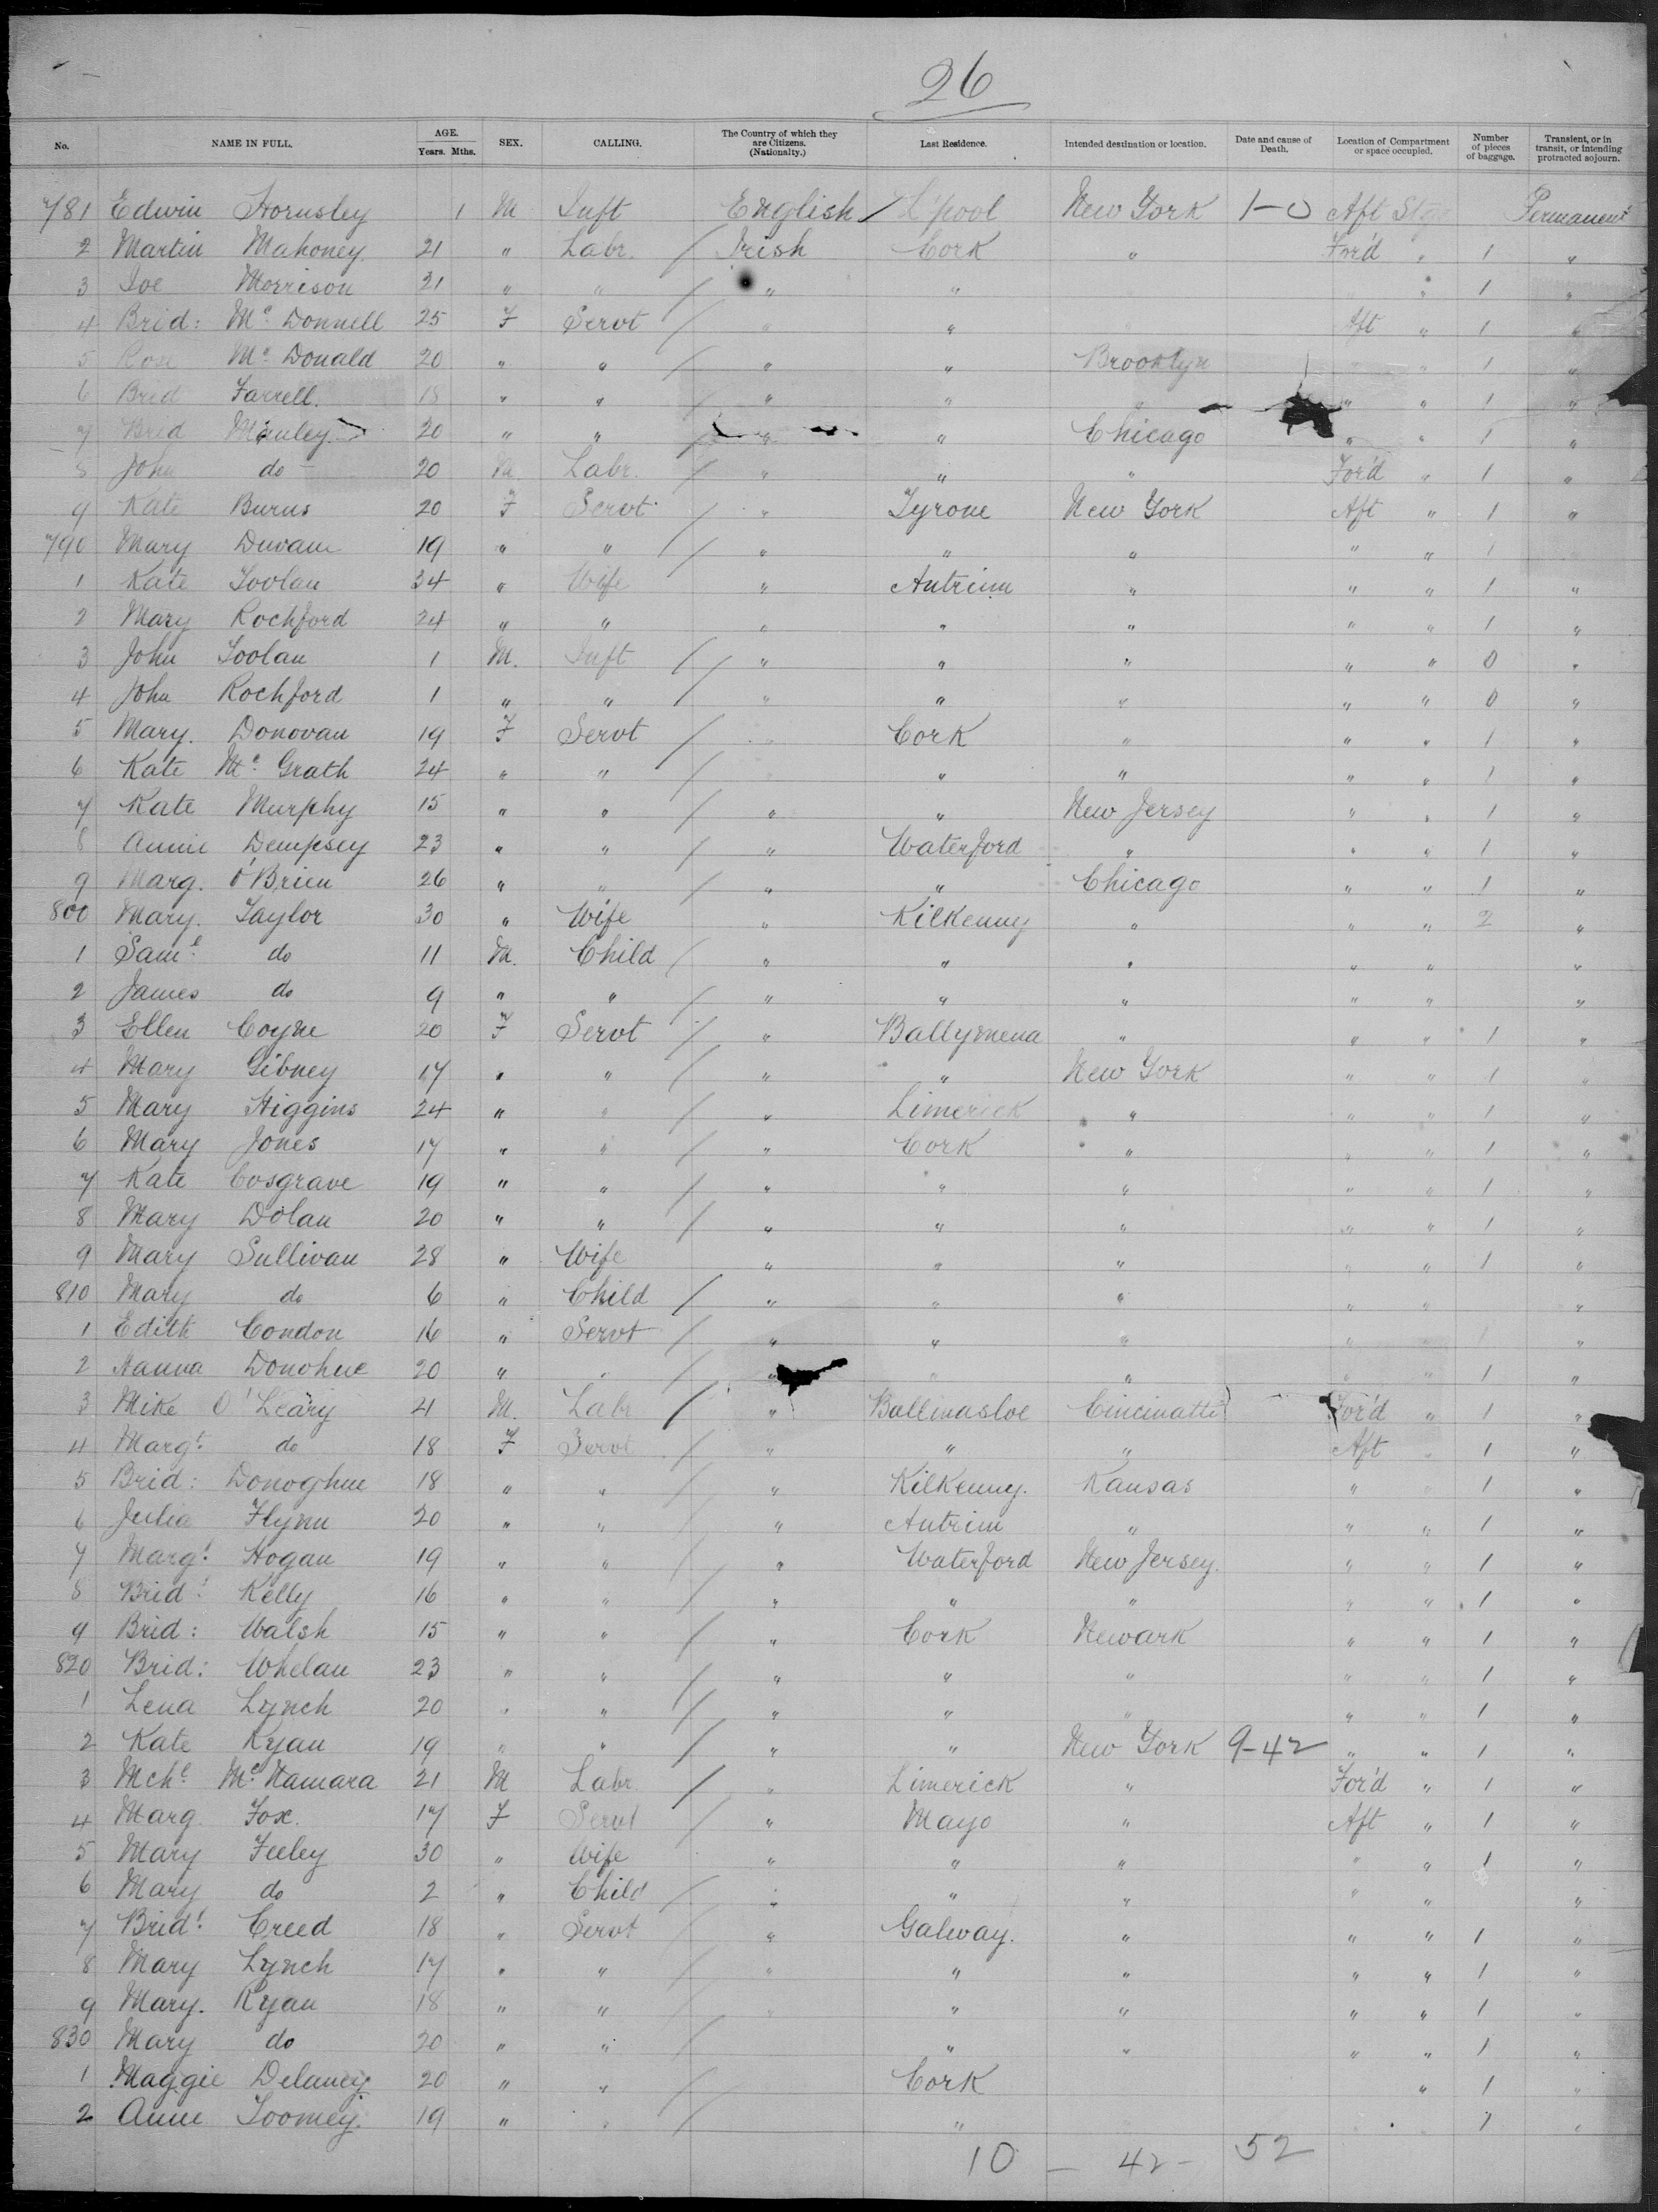 26
No. NAME IN FULL. AGE. Years. Mths. SEX. CALLING. The Country of which they are Citizens. (Nationality.) Last Residence. Intended destination or location. Date and cause of Death. Location of Compartment or space occupied. Number of pieces of baggage. Transient, or in transit, or intending protracted sojourn.
781 Edwin Hornsley 1 M Inft English L'pool New York 1-0 Aft Stge Permanent
2 Martin Mahoney 21 " Labr. / Irish Cork " Ford " 1 "
3 Joe Morrison 21 " " / " " " 1 "
4 Brid: Mc Donnell 25 F Servt / " " Aft " 1 "
5 Rose Mc Donald 20 " " / " " Brooklyn " 1 "
6 Brid Farrell. 18 " " / " " " " 1 "
7 Brid Manley 20 " " / " " Chicago " " 1 "
8 John do 20 M. Labr. / " " " For'd " 1 "
9 Kate Burns 20 F Servt / " Tyrone New York Aft " 1 "
790 Mary Duvane 19 " " / " " " " " 1
1 Kate Toolan 34 " Wife " Antrim " " " 1 "
2 Mary Rochford 24 " " " " " " " 1 "
3 John Toolan 1 M. Inft / " " " " " 0 "
4 John Rochford 1 " " / " " " " " 0 "
5 Mary. Donovan 19 F Servt / " Cork " " " 1 "
6 Kate Mc Grath 24 " " / " " " " " 1 "
7 Kate Murphy 15 " " / " " New Jersey " " 1 "
8 Annie Dempsey 23 " " / " Waterford " " " 1 "
9 Marg. O'Brien 26 " " / " " Chicago " " 1 "
800 Mary. Taylor 30 " Wife " Kilkenny " " " 2 "
1 Saml do 11 M. Child / " " " " " "
2 James do 9 " " / " " " " " "
3 Ellen Coyne 20 F Servt / " Ballymena " " " 1 "
4 Mary Gibney 17 " " / " " New York " " 1 "
5 Mary Higgins 24 " " / " Limerick " " " 1 "
6 Mary Jones 17 " " / " Cork " " " 1 "
7 Kate Cosgrave 19 " " / " " " " " 1 "
8 Mary Dolan 20 " " / " " " " " 1 "
9 Mary Sullivan 28 " Wife " " " " " 1 "
810 Mary do 6 " Child / " " " " " "
1 Edith Condon 16 " Servt / " " " " " "
2 Hanna Donohue 20 " " " " " " " 1 "
3 Mike O'Leary 21 M. Labr / " Ballinasloe Cincinatti For'd " 1 "
4 Margt do 18 F Servt / " " " Aft " 1 "
5 Brid: Donoghue 18 " " / " Kilkenny. Kansas " " 1 "
6 Julia Flynn 20 " " / " Antrim " " " 1 "
7 Margt. Hogan 19 " " / " Waterford New Jersey. " " 1 "
8 Brid: Kelly 16 " " / " " " " " 1 "
9 Brid: Walsh 15 " " / " Cork Newark " " 1 "
820 Brid: Whelan 23 " " / " " " " " 1 "
1 Lena Lynch 20 " " / " " " " " 1 "
2 Kate Ryan 19 " " / " " New York 9-42 " " 1 "
3 Mchl Mc Namara 21 M Labr / " Limerick " For'd " 1 "
4 Marg Fox. 17 F Servt / " Mayo " Aft " 1 "
5 Mary Feeley 30 " Wife " " " " " 1 "
6 Mary do 2 " Child / " " " " " "
7 Bridt. Creed 18 " Servt / " Galway. " " " 1 "
8 Mary Lynch 17 " " / " " " " " 1 "
9 Mary. Ryan 18 " " / " " " " 1 "
830 Mary do 20 " " / " " " " 1 "
1 Maggie Delaney 20 " " / Cork " 1 "
2 Anne Toomey. 19 " " / " 1 "
10 - 42 - 52